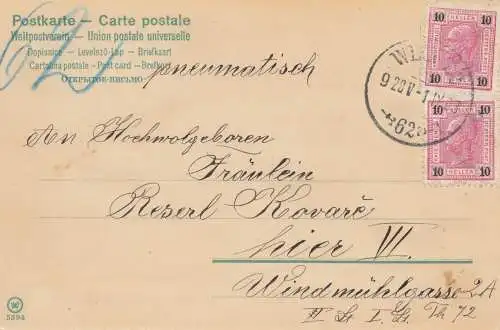 Postkarte — Carte postale
Weltpostverein — Union postale universelle
Dopisnice — Levelező-Lap — Briefkaart
Cartolina postale — Post card — Brefkort
Открытое-письмо
pneumatisch
10 HELLER 10
10 10
WI
9 20V-1 IV
62
10 10
10 HELLER 10
An Hochwolgeboren
Fräulein
Reserl Kovarč
hier VI.
Windmühlgasse 2A
II St. I. G. Th 72
W
5594